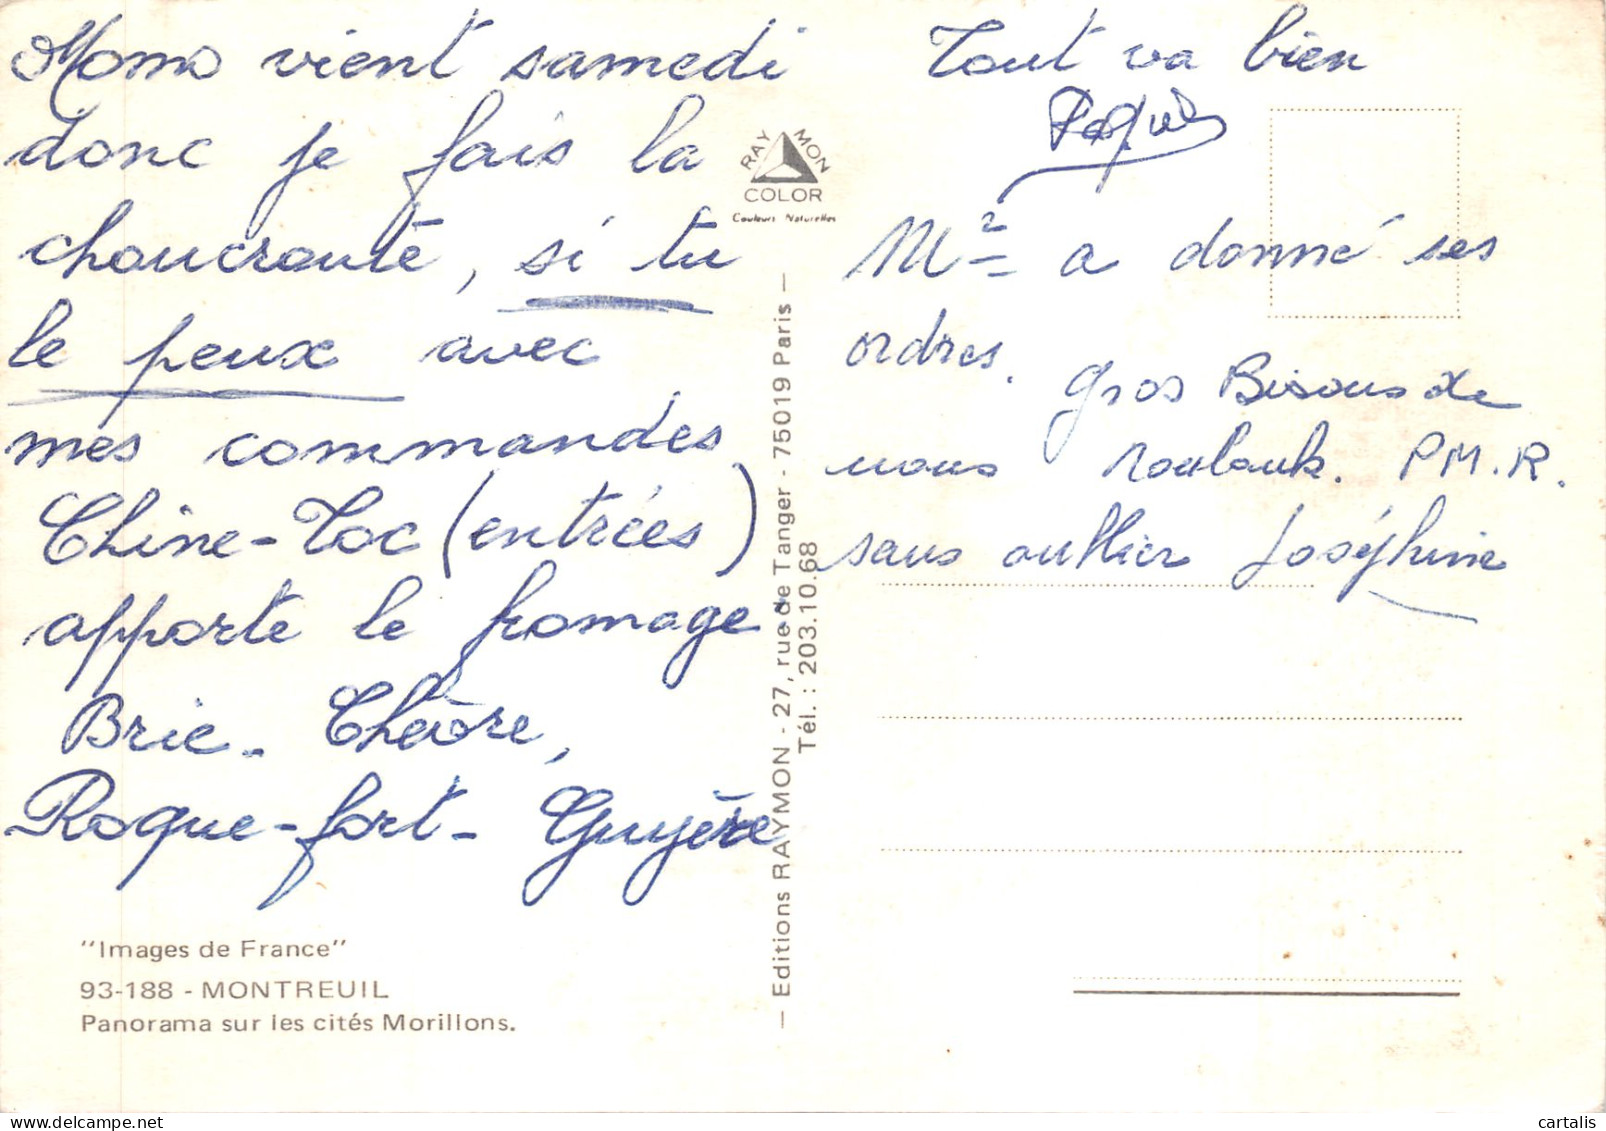 Momo vient samedi
donc je fais la
choucroute, si tu
le peux avec
mes commandes
Chine-Toc (entrées)
apporte le fromage
Brie - Chèvre,
Roque-fort - Gruyère
"Images de France"
93-188 - MONTREUIL
Panorama sur les cités Morillons.
RAYMON
COLOR
Couleurs Naturelles
— Editions RAYMON - 27, rue de Tanger - 75019 Paris —
Tél. : 203.10.68
Tout va bien
a donné ses
ordres.
Gros Bisous de
nous P.M.R.
sans oublier Joséphine
cartalis